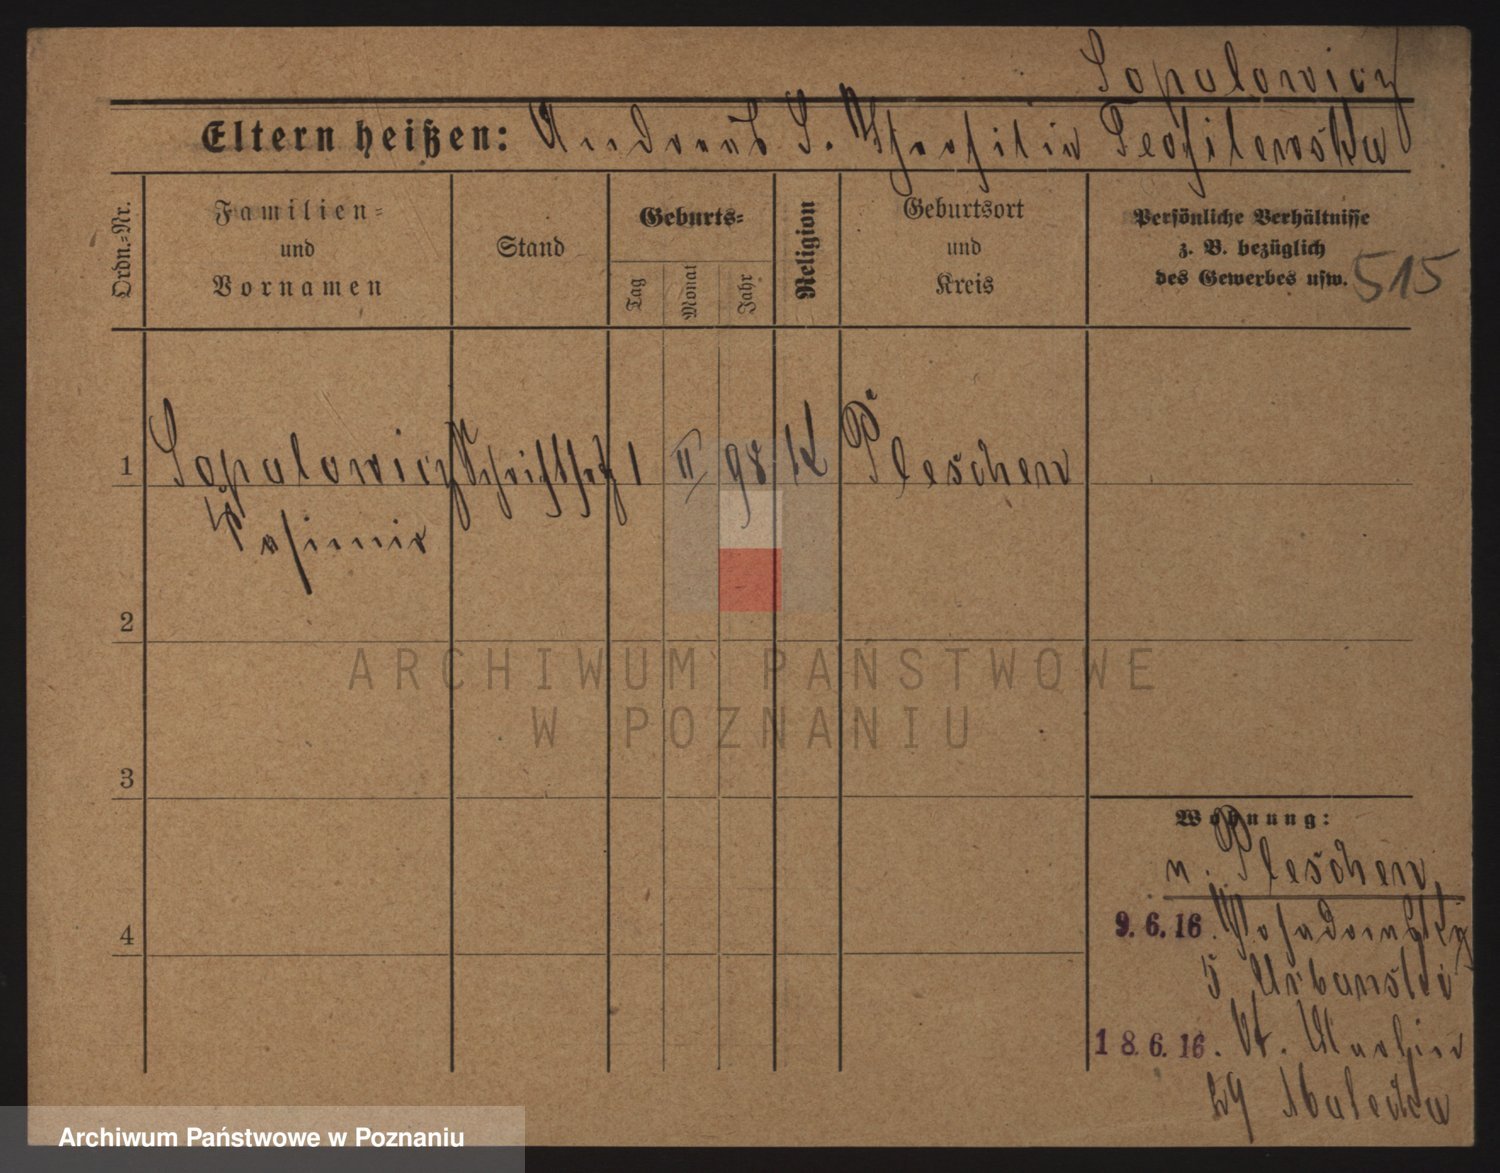 Sopalowicz
Eltern heißen: Andreas S. Theofilia Teofilewska
Ordn.-Nr.
Familien- und Vornamen
Stand
Geburts-
Tag
Monat
Jahr
Religion
Geburtsort und Kreis
Persönliche Verhältnisse
z. B. bezüglich
des Gewerbes usw. 515
1 Sopalowicz Schriftsetz 1 II 98 K Pleschen
Kasimir
2
3
4
Wohnung:
n. Pleschen
9. 6. 16.
5 Urbanski
18. 6. 16. St. Martin
29 Malecka
ARCHIWUM PAŃSTWOWE
W POZNANIU
Archiwum Państwowe w Poznaniu